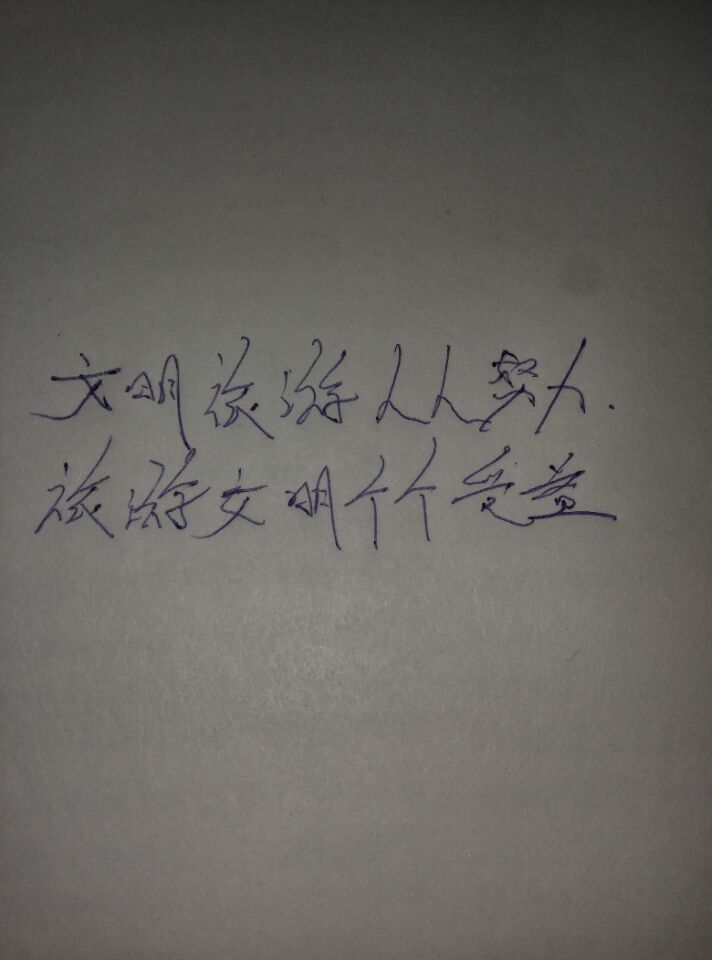 文明旅游人人努力.
旅游文明个个受益